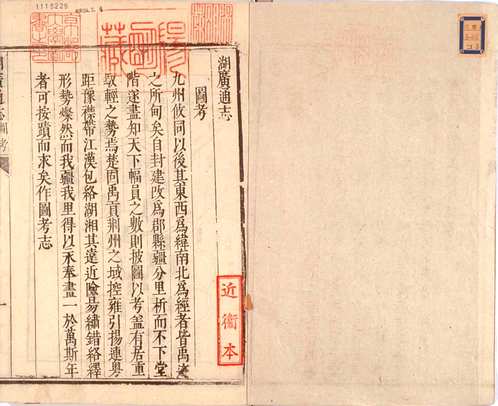 湖廣通志
圖考
九州攸同以後其東西為緯南北為經者皆禹迹
之所甸矣自封建改為郡縣疆分里析而不下堂
階遂盡知天下幅員之數則披圖以考蓋有若重
馭輕之勢焉楚固禹貢荆州之域控雍引揚連粤
距豫襟帶江漢包絡湖湘其遠近險易繡錯絡繹
形勢燦然而我疆我里得以永奉畫一於萬斯年
者可按蹟而求矣作圖考志
近衞本
陽明藏